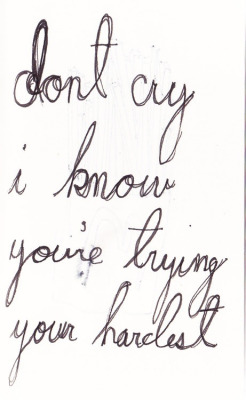 dont cry
i know
you're trying
your hardest